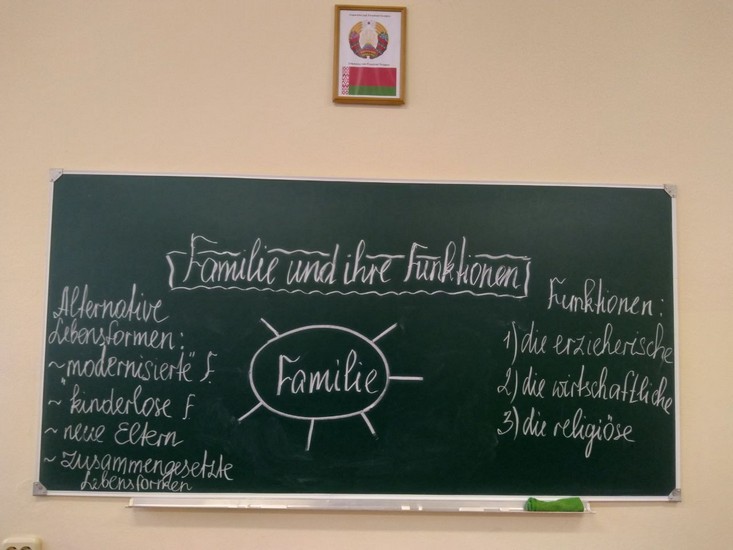 Familie und ihre Funktionen
Alternative
Lebensformen:
~ "modernisierte" F.
~ kinderlose F
~ neue Eltern
~ zusammengesetzte
Lebensformen
Familie
Funktionen:
1) die erzieherische
2) die wirtschaftliche
3) die religiöse